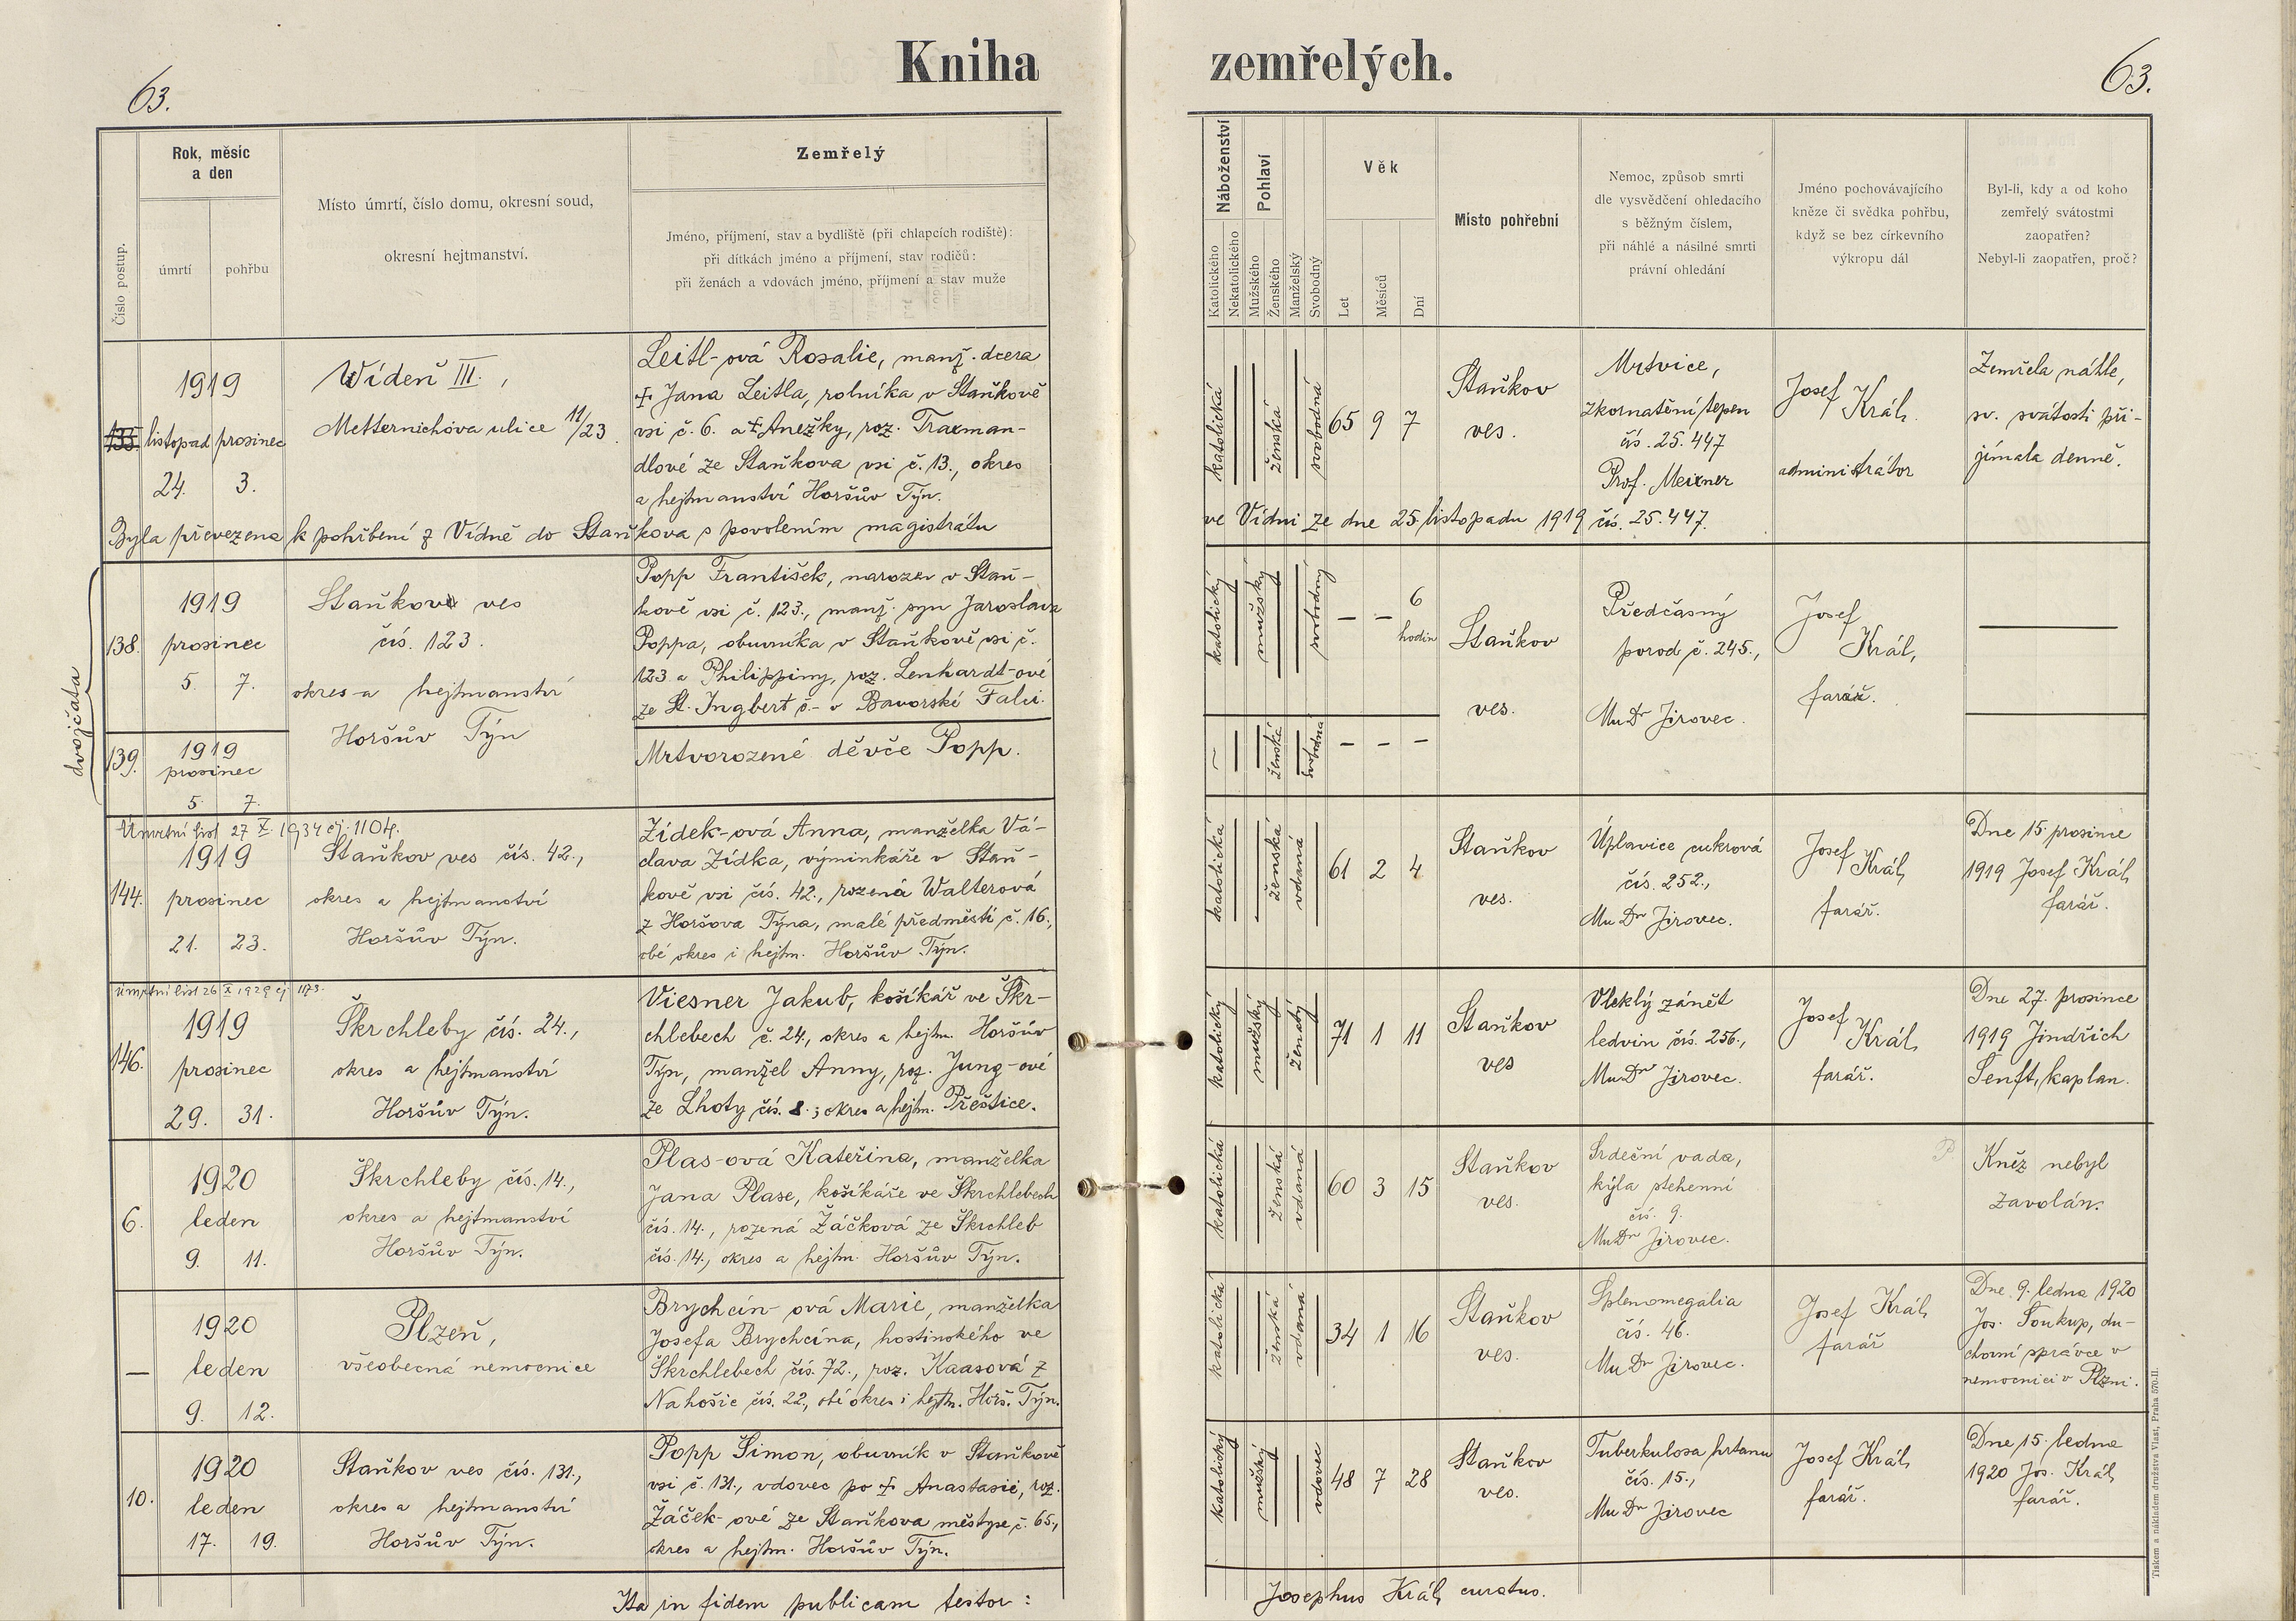 Kniha zemřelých.
63.
63.
Číslo postup.
Rok, měsíc
a den
úmrtí
pohřbu
Místo úmrtí, číslo domu, okresní soud,
okresní hejtmanství.
Zemřelý
Jméno, příjmení, stav a bydliště (při chlapcích rodiště):
při dítkách jméno a příjmení, stav rodičů:
při ženách a vdovách jméno, příjmení a stav muže
Náboženství
Katolického
Nekatolického
Pohlaví
Mužského
Ženského
Manželský
Svobodný
Věk
Let
Měsíců
Dní
Místo pohřební
Nemoc, způsob smrti
dle vysvědčení ohledacího
s běžným číslem,
při náhlé a násilné smrti
právní ohledání
Jméno pochovávajícího
kněze či svědka pohřbu,
když se bez církevního
výkropu dál
Byl-li, kdy a od koho
zemřelý svátostmi
zaopatřen?
Nebyl-li zaopatřen, proč?
1919
listopad prosinec
24. 3.
Vídeň III.,
Metternichova ulice 11/23.
Leitl-ová Rosalie, manž. dcera
+ Jana Leitla, rolníka v Staňkově
vsi č. 6. a + Anežky, roz. Traxman-
dlové ze Staňkova vsi č. 13., okres
a hejtmanství Horšův Týn.
katolická
ženská
svobodná
65 9 7
Staňkov
ves.
Mrtvice,
zkornatění tepen
čís. 25.447
Prof. Meixner
Josef
Král
administrátor
Zemřela náhle,
sv. svátosti při-
jímala denně.
Byla převezena k pohřbení z Vídně do Staňkova s povolením magistrátu
ve Vídni ze dne 25. listopadu 1919 čís. 25.447.
dvojčata
138.
1919
prosinec
5. 7.
Staňkov ves
čís. 123.
okres a hejtmanství
Horšův Týn
Popp František, narozen v Staň-
kově vsi č. 123., manž. syn Jaroslava
Poppa, obuvníka v Staňkově vsi č.
123 a Philippiny, roz. Lenhardt-ové
ze St. Ingbert č.- v Bavorské Falci.
katolický
mužský
svobodný
— — 6
hodin
Staňkov
ves.
Předčasný
porod č. 245.,
MuDr Jirovec.
Josef
Král,
farář.
—
139.
1919
prosinec
5. 7.
Mrtvorozené děvče Popp.
ženské
svobodná
— — —
Úmrtní list 27 X. 1934 čj. 1104.
144.
1919
prosinec
21. 23.
Staňkov ves čís. 42.,
okres a hejtmanství
Horšův Týn.
Zídek-ová Anna, manželka Vá-
clava Zídka, výminkáře v Staň-
kově vsi čís. 42., rozená Walterová
z Horšova Týna, malé předměstí č. 16.,
obé okres i hejtm. Horšův Týn.
katolická
ženská
vdaná
61 2 4
Staňkov
ves.
Úplavice cukrová
čís. 252.,
MuDr Jirovec.
Josef
Král,
farář.
Dne 15. prosince
1919 Josef Král,
farář.
úmrtní list 26 X 1929 čj. 1173.
146.
1919
prosinec
29. 31.
Škrchleby čís. 24.,
okres a hejtmanství
Horšův Týn.
Viesner Jakub, košíkář ve Škr-
chlebech č. 24., okres a hejtm. Horšův
Týn, manžel Anny, roz. Jung-ové
ze Lhoty čís. 8.; okres a hejtm. Přeštice.
katolický
mužský
ženatý
71 1 11
Staňkov
ves
Vleklý zánět
ledvin čís. 256.,
MuDr Jirovec.
Josef
Král,
farář.
Dne 27. prosince
1919 Jindřich
Šenft, kaplan.
6.
1920
leden
9. 11.
Škrchleby čís. 14.,
okres a hejtmanství
Horšův Týn.
Plas-ová Kateřina, manželka
Jana Plase, košíkáře ve Škrchlebech
čís. 14., rozená Žáčková ze Škrchleb
čís. 14., okres a hejtm. Horšův Týn.
katolická
ženská
vdaná
60 3 15
Staňkov
ves.
Srdeční vada,
kýla stehenní
čís. 9.
MuDr Jirovec.
Kněz nebyl
zavolán.
—
1920
leden
9. 12.
Plzeň,
všeobecná nemocnice
Brychcín-ová Marie, manželka
Josefa Brychcína, hostinského ve
Škrchlebech čís. 72., roz. Kaasová z
Nahošic čís. 22, obé okres i hejtm. Horš. Týn.
katolická
ženská
vdaná
34 1 16
Staňkov
ves.
Splenomegalia
čís. 46.
MuDr Jirovec.
Josef Král,
farář
Dne 9. ledna 1920
Jos. Soukup, du-
chovní správce v
nemocnici v Plzni.
10.
1920
leden
17. 19.
Staňkov ves čís. 131.,
okres a hejtmanství
Horšův Týn.
Popp Šimon, obuvník v Staňkově
vsi č. 131., vdovec po + Anastasii, roz.
Žáček-ové ze Staňkova městyse č. 65.,
okres a hejtm. Horšův Týn.
katolický
mužský
vdovec
48 7 28
Staňkov
ves.
Tuberkulosa hrtanu
čís. 15.,
MuDr Jirovec
Josef Král,
farář.
Dne 15. ledna
1920 Jos. Král,
farář.
Ita in fidem publicam testor:
Josephus Král, curatus.
Tiskem a nákladem družstva Vlast, Praha 570-II.